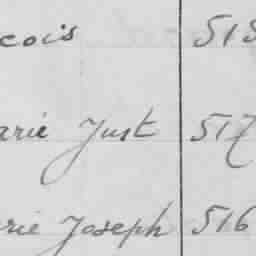 cois 518
arie Just 517
rie Joseph 516